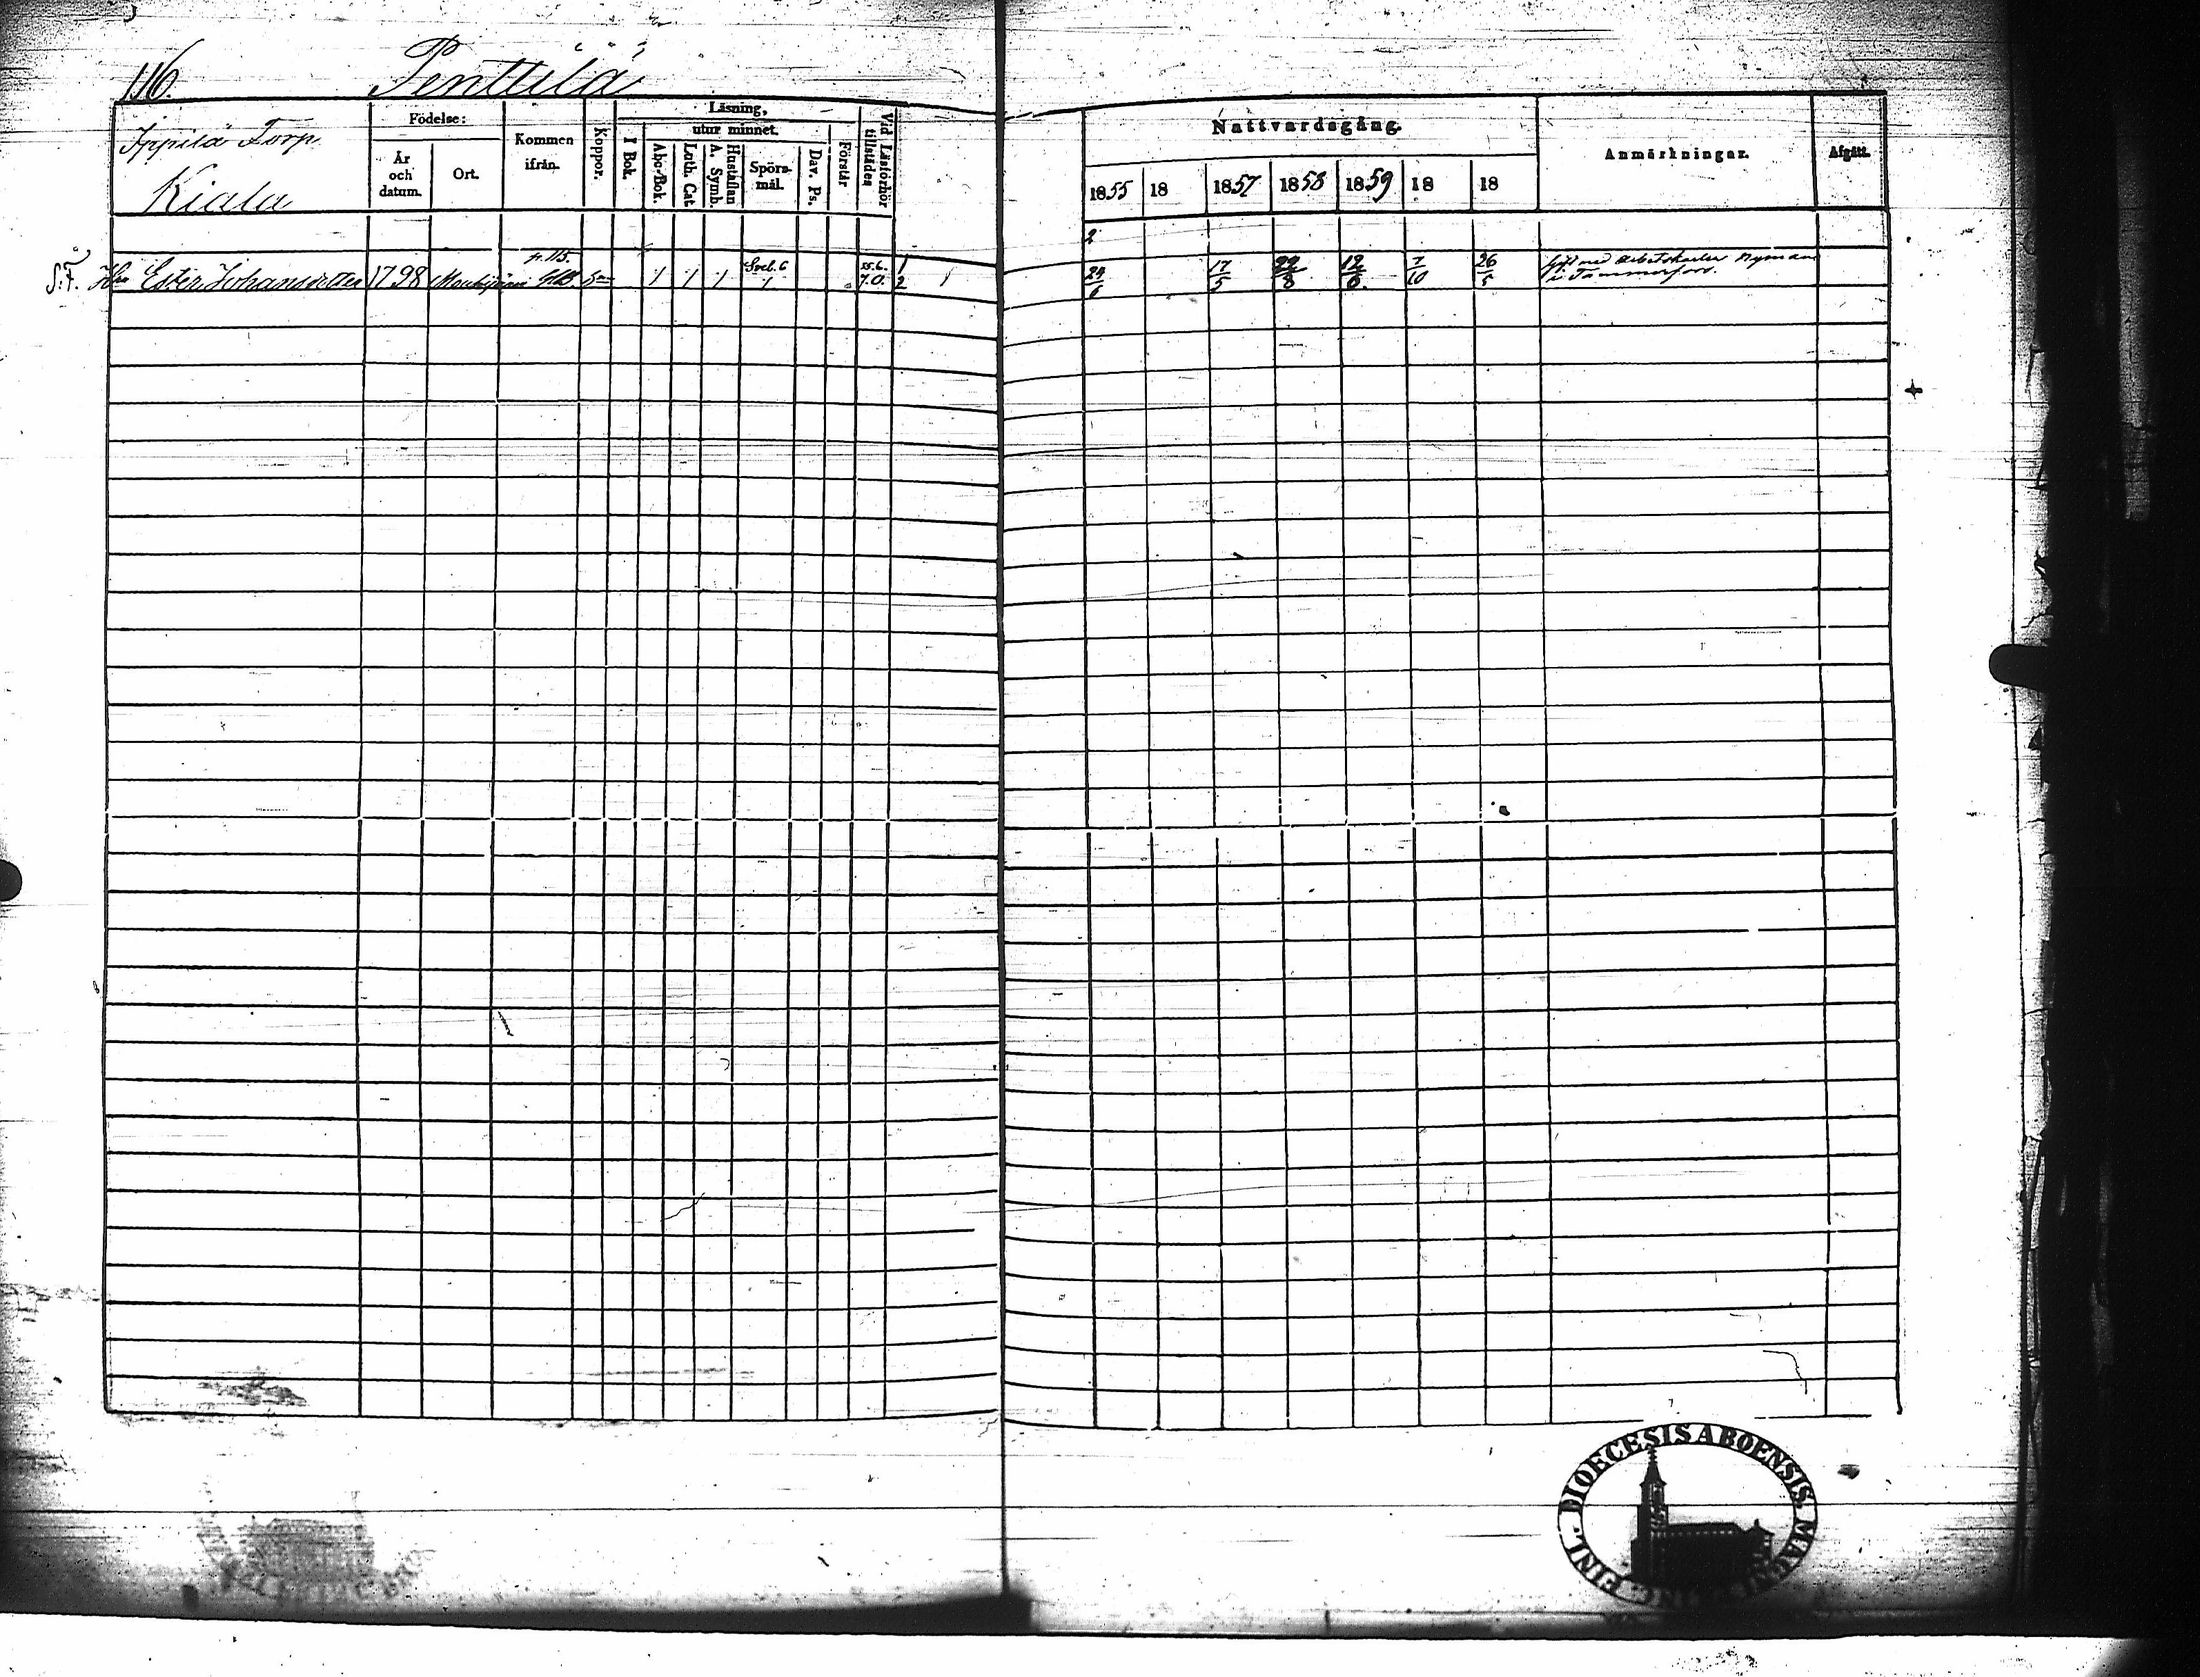 116.
Penttilä
Ippilä Torp
Kiala
Födelse:
År och datum.
Ort.
Kommen ifrån.
Koppor.
Läsning,
I Bok.
utur minnet.
Abc-Bok.
Luth. Cat
Hustaflan A. Symb.
Spörs-mål.
Dav. Ps.
Förstår
Vid Läsförhör tillstädes
Nattvardsgång.
1855 18 1857 1858 1859 18 18
Anmärkningar.
Afgått.
2
p. 115.
Svel. 6 55.6. 1
S:F. Hu Ester Johansdotter 1798 1 1 1 1 7.0. 2 1
24/6 17/5 22/8 12/6 7/10 26/5
Gift med arbetskarlen Nyman
i Tammerfors.
FINL. DIOECESIS ABOENSIS, MAGNI PRINC.